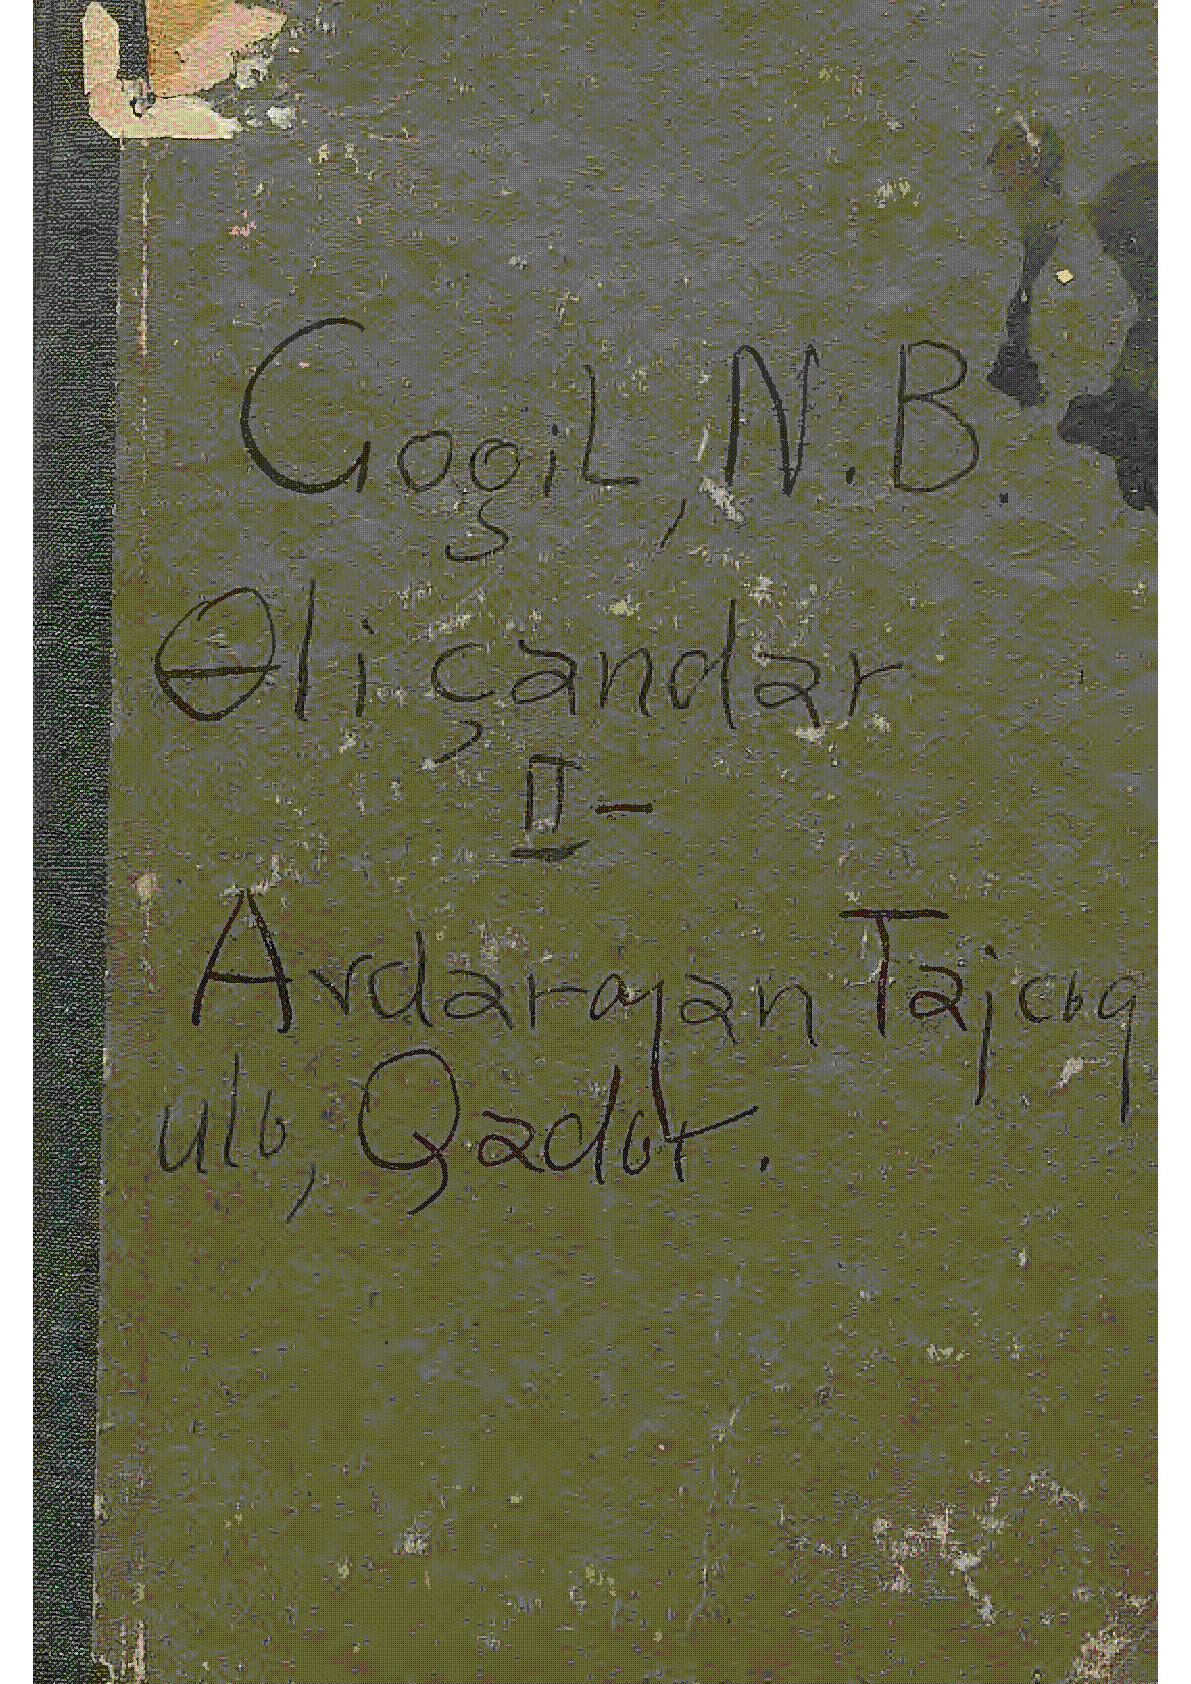 Gogil, N.B.
Ɵli çandar
II-
Avdarajan Tajcьq
ulь, Qadьr.